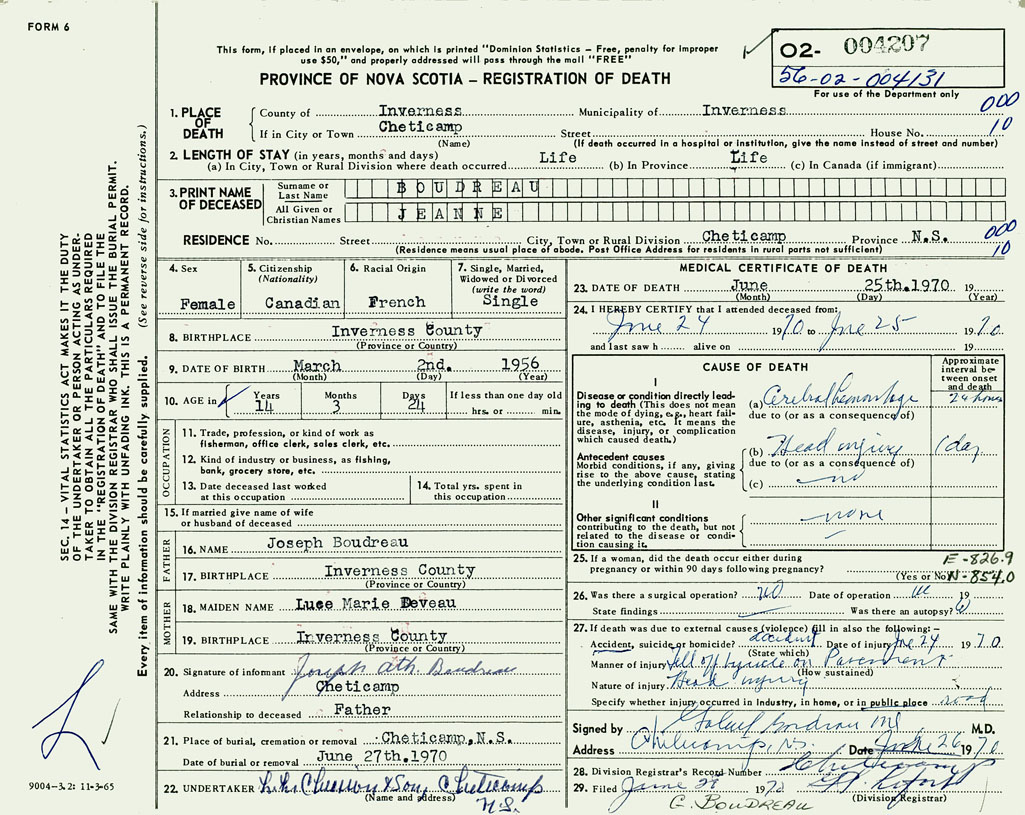 FORM 6
This form, if placed in an envelope, on which is printed "Dominion Statistics – Free, penalty for improper
use $50," and properly addressed will pass through the mail "FREE"
PROVINCE OF NOVA SCOTIA – REGISTRATION OF DEATH
02- 004207
56-02-004131
For use of the Department only
1. PLACE OF DEATH
County of Inverness Municipality of Inverness 000
If in City or Town Cheticamp Street House No. 10
(Name) (If death occurred in a hospital or institution, give the name instead of street and number)
2. LENGTH OF STAY (in years, months and days)
(a) In City, Town or Rural Division where death occurred Life (b) In Province Life (c) In Canada (if immigrant)
3. PRINT NAME OF DECEASED
Surname or Last Name BOUDREAU
All Given or Christian Names JEANNE
RESIDENCE No. Street City, Town or Rural Division Cheticamp Province N.S. 000
(Residence means usual place of abode. Post Office Address for residents in rural parts not sufficient) 10
4. Sex Female
5. Citizenship (Nationality) Canadian
6. Racial Origin French
7. Single, Married, Widowed or Divorced (write the word) Single
8. BIRTHPLACE Inverness County
(Province or Country)
9. DATE OF BIRTH March 2nd. 1956
(Month) (Day) (Year)
10. AGE in Years 14 Months 3 Days 24 If less than one day old hrs. or min.
OCCUPATION
11. Trade, profession, or kind of work as
fisherman, office clerk, sales clerk, etc.
12. Kind of industry or business, as fishing,
bank, grocery store, etc.
13. Date deceased last worked
at this occupation
14. Total yrs. spent in
this occupation
15. If married give name of wife
or husband of deceased
FATHER
16. NAME Joseph Boudreau
17. BIRTHPLACE Inverness County
(Province or Country)
MOTHER
18. MAIDEN NAME Luce Marie Deveau
19. BIRTHPLACE Inverness County
(Province or Country)
20. Signature of informant Joseph Ath Boudreau
Address Cheticamp
Relationship to deceased Father
21. Place of burial, cremation or removal Cheticamp, N.S.
Date of burial or removal June 27th.1970
22. UNDERTAKER & Son Cheticamp
(Name and address) N.S.
MEDICAL CERTIFICATE OF DEATH
23. DATE OF DEATH June 25th.1970 19
(Month) (Day) (Year)
24. I HEREBY CERTIFY that I attended deceased from:
June 24 1970 to June 25 1970
and last saw h alive on 19
CAUSE OF DEATH
Approximate interval between onset and death
I
Disease or condition directly leading to death (This does not mean the mode of dying, e.g., heart failure, asthenia, etc. It means the disease, injury, or complication which caused death.)
(a) Cerebral hemorrhage 24 hours
due to (or as a consequence of)
Antecedent causes
Morbid conditions, if any, giving rise to the above cause, stating the underlying condition last.
(b) Head injury 1 day
due to (or as a consequence of)
(c) no
II
Other significant conditions
contributing to the death, but not related to the disease or condition causing it.
none
25. If a woman, did the death occur either during
pregnancy or within 90 days following pregnancy?
(Yes or No)
E-826.9
N-854.0
26. Was there a surgical operation? no Date of operation 19
State findings Was there an autopsy?
27. If death was due to external causes (violence) fill in also the following: –
Accident, suicide or homicide? accident Date of injury June 24 1970
(State which)
Manner of injury Fell off bycicle on Pavement
(How sustained)
Nature of injury Head injury
Specify whether injury occurred in industry, in home, or in public place road
Signed by Boudreau MD M.D.
Address Cheticamp, N.S. Date June 26 1970
28. Division Registrar's Record Number Cheticamp
29. Filed June 29 1970
(Division Registrar)
G. BOUDREAU
SEC. 14 – VITAL STATISTICS ACT MAKES IT THE DUTY
OF THE UNDERTAKER OR PERSON ACTING AS UNDER-
TAKER TO OBTAIN ALL THE PARTICULARS REQUIRED
IN THE "REGISTRATION OF DEATH" AND TO FILE THE
SAME WITH THE DIVISION REGISTRAR WHO SHALL ISSUE THE BURIAL PERMIT.
WRITE PLAINLY WITH UNFADING INK. THIS IS A PERMANENT RECORD.
Every item of information should be carefully supplied. (See reverse side for instructions.)
9004-3.2: 11-3-65